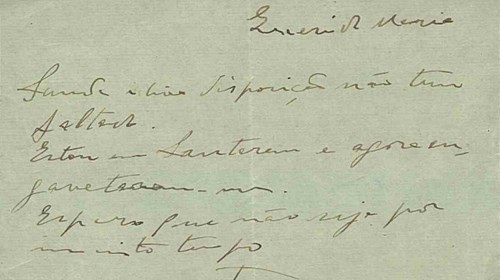 Querida Maria
Saude e boa disposição não tem
faltado.
Estou em Santarem e agora en-
gavetaram-me.
Espero que não seja por
muito tempo